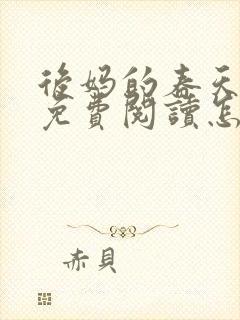 後妈的春天
免費閱讀怎
赤貝